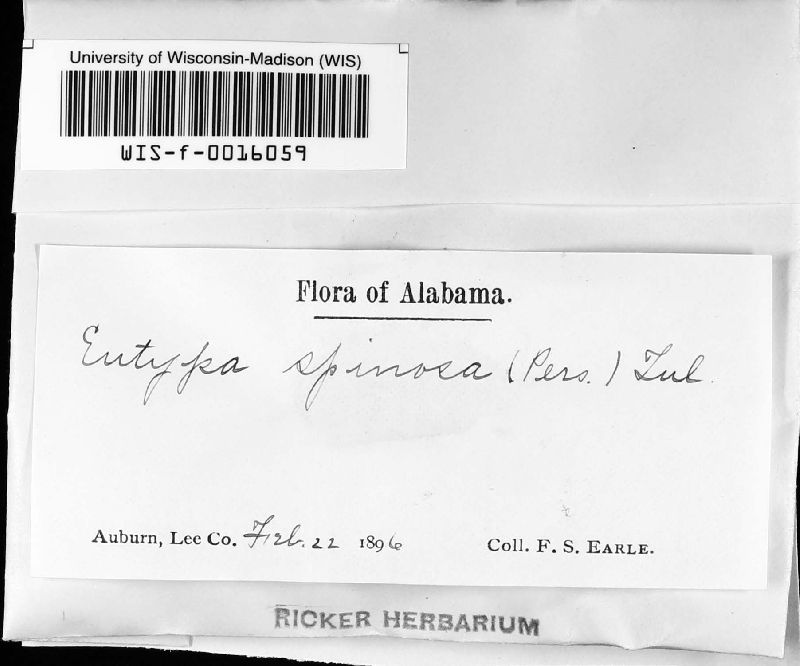 University of Wisconsin-Madison (WIS)
WIS-f-0016059
Flora of Alabama.
Eutypa spinosa (Pers.) Tul.
Auburn, Lee Co. Feb. 22 1896
Coll. F. S. EARLE.
RICKER HERBARIUM